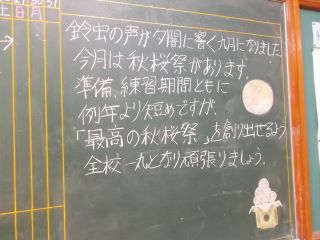 30 31
土 日 月
鈴虫の声が夕闇に響く九月になりました。
今月は秋桜祭があります。
準備、練習期間ともに
例年より短めですが、
「最高の秋桜祭」を創り出せるよう
全校一丸となり頑張りましょう。